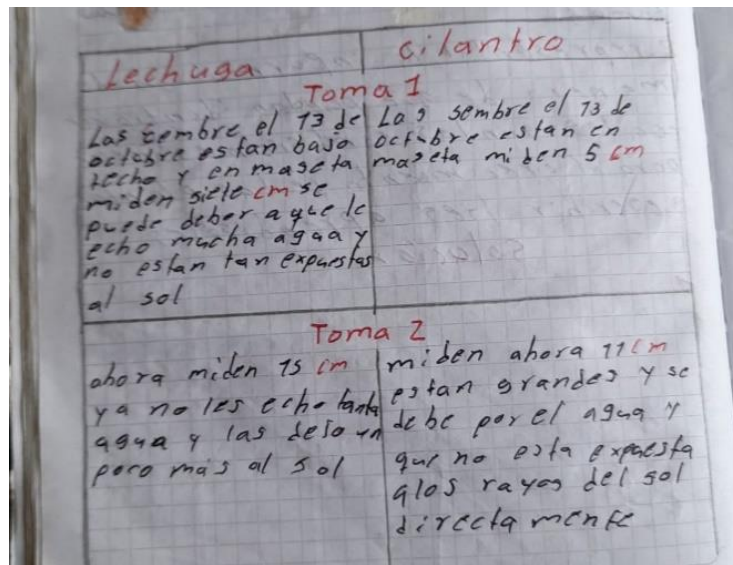 Lechuga
cilantro
Toma 1
Las sembre el 13 de
octubre estan bajo
techo y en maseta
miden siete cm se
puede deber a que le
echo mucha agua y
no estan tan expuestas
al sol
Las sembre el 13 de
octubre estan en
maseta miden 5 cm
Toma 2
ahora miden 15 cm
ya no les echo tanta
agua y las dejo un
poco más al sol
miden ahora 11 cm
estan grandes y se
debe por el agua y
que no esta expuesta
a los rayos del sol
directamente